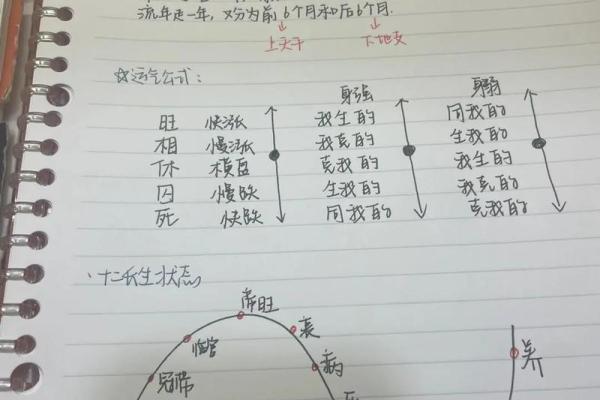 流年走一年，又分为前6个月和后6个月.
上天干 下地支
☆运气公式：
身强 身弱
旺 快涨 我生的 同我的
相 慢涨 我克的 生我的
休 横盘 克我的 我生的
囚 慢跌 生我的 我克的
死 快跌 同我的 克我的
十二长生状态
帝旺
临官 衰
冠带 病
养